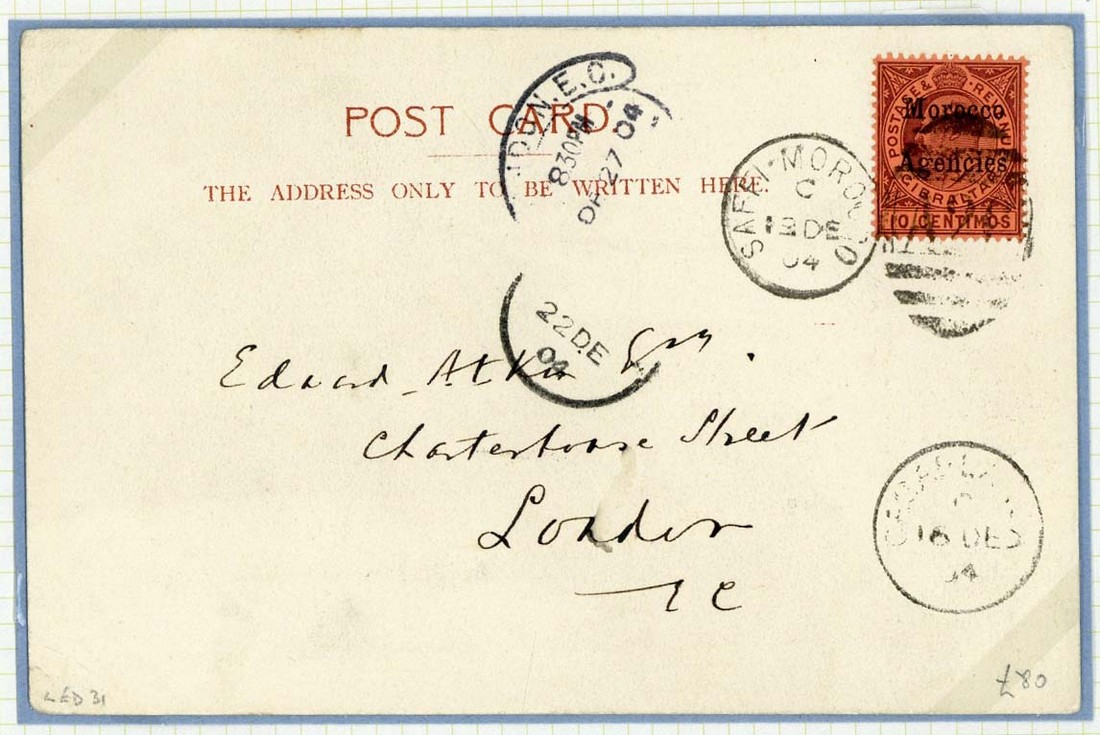 POST CARD
THE ADDRESS ONLY TO BE WRITTEN HERE.
POSTAGE & REVENUE
Morocco
Agencies
GIBRALTAR
10 CENTIMOS
SAFFI · MOROCCO
C
DE
04
DON. E.C.
830PM
DE 27 04
22 DE
04
Edward Atkin Esqr.
Charterhouse Street
London
E C
C
DE
04
LED 31
£80